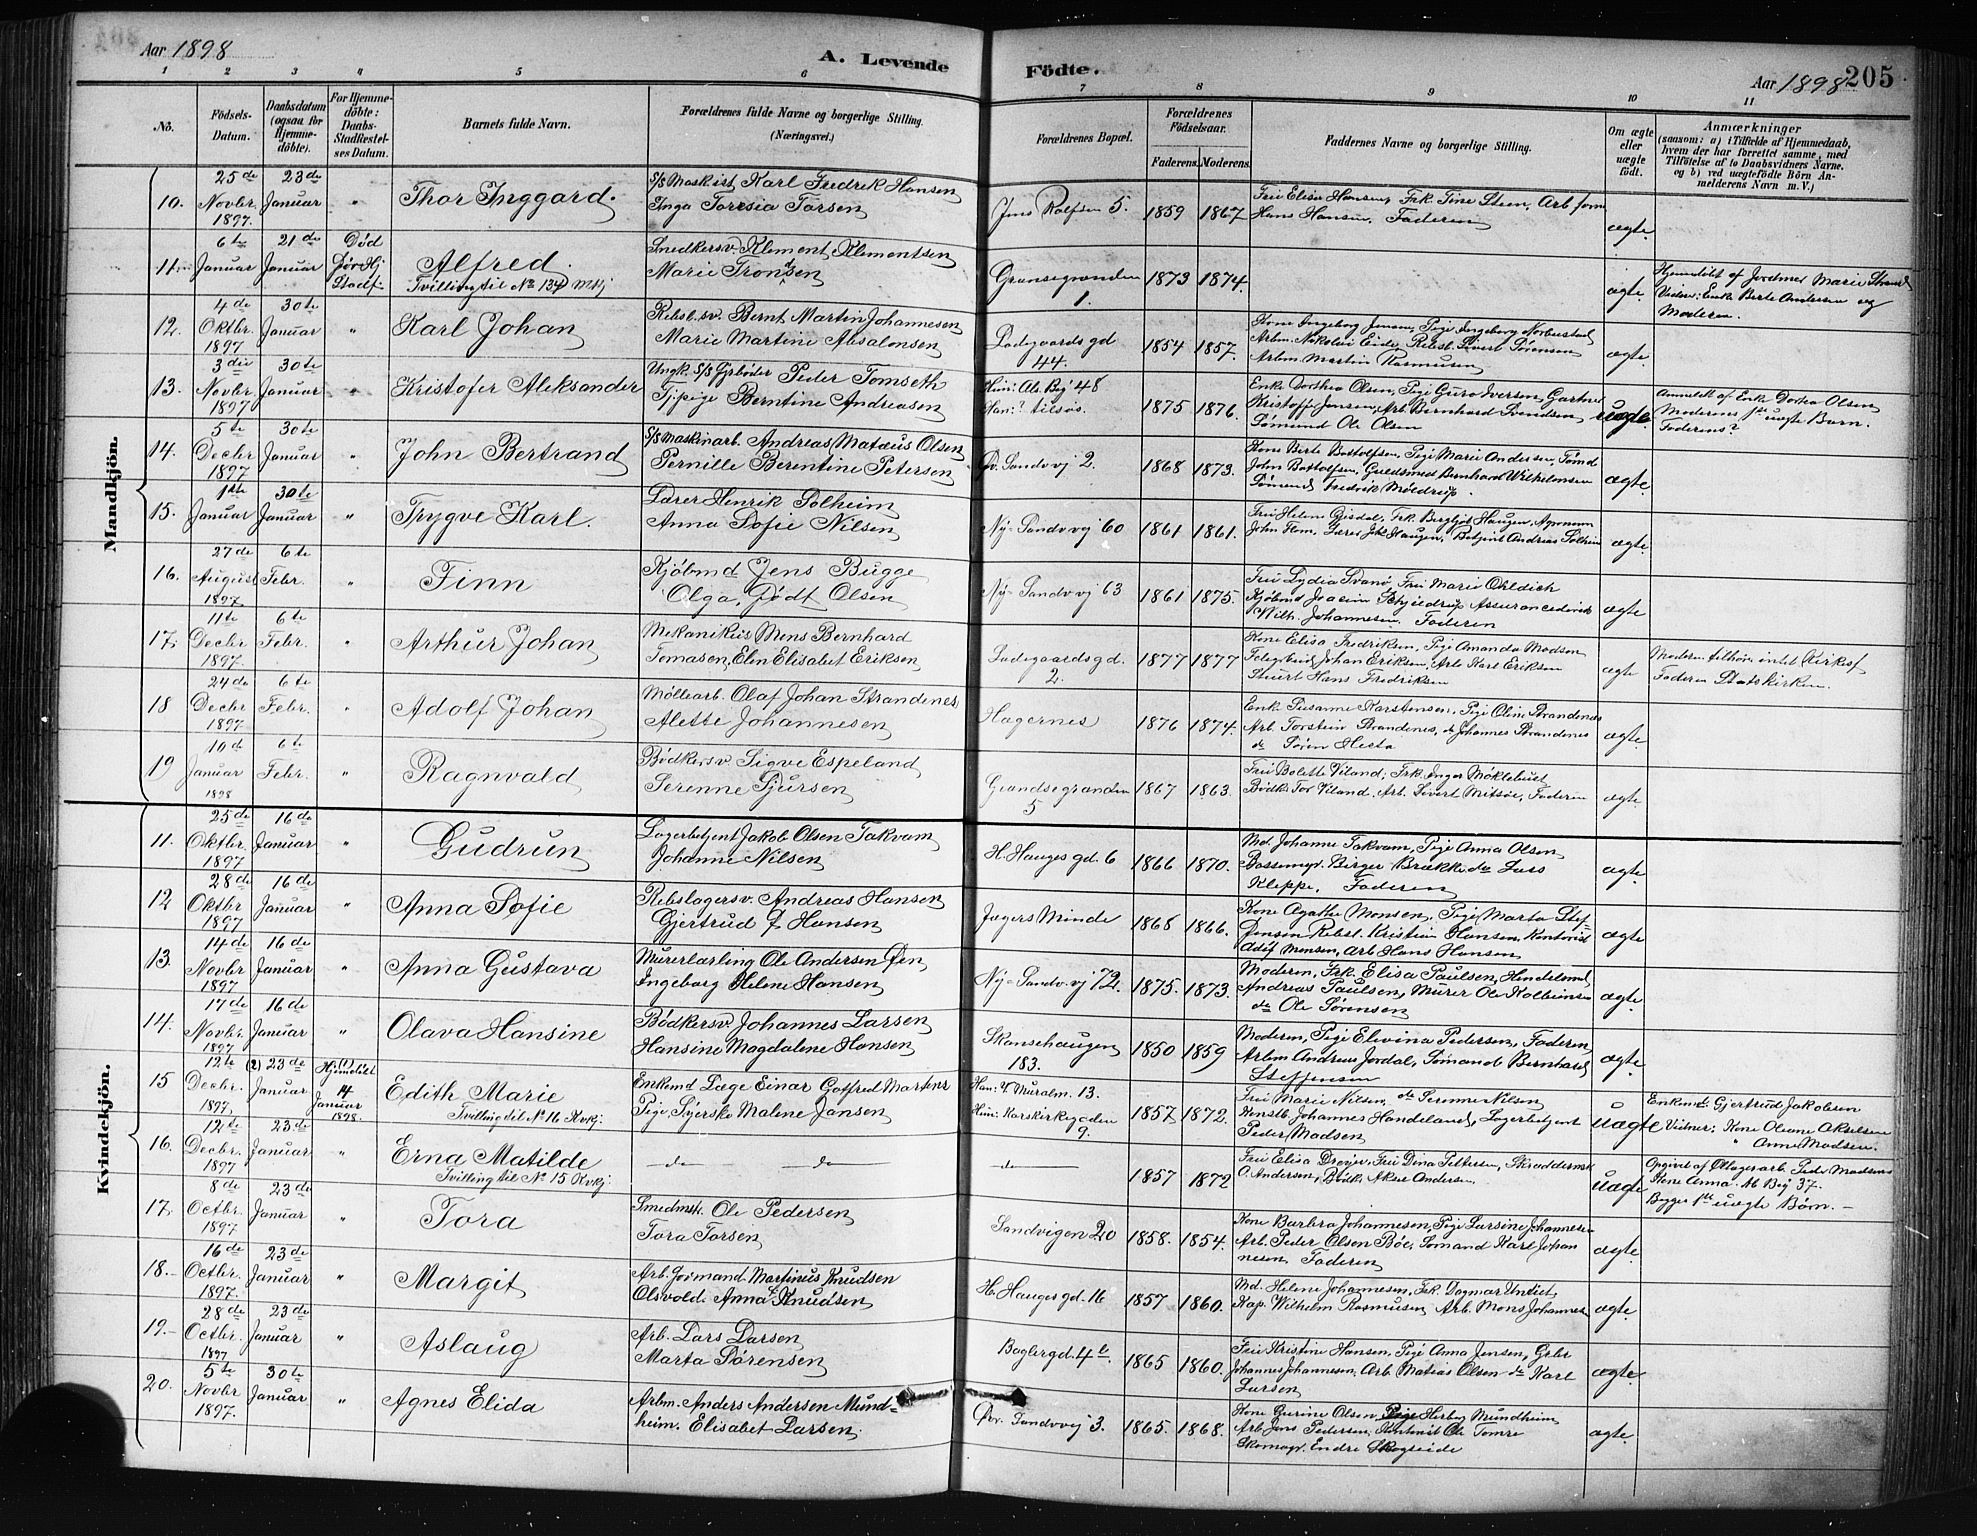 Aar 1898
A. Levende
Födte.
Aar 1898
205
1 2 3 4 5 6 7 8 9 10 11
No.
Födsels-
Datum.
Daabsdatum
(ogsaa for
Hjemme-
döbte).
For Hjemme-
döbte:
Daabs-
Stadfæstel-
ses Datum.
Barnets fulde Navn.
Forældrenes fulde Navne og borgerlige Stilling.
(Næringsvei.)
Forældrenes Bopæl.
Forældrenes
Födselsaar.
Faderens. Moderens.
Faddernes Navne og borgerlige Stilling.
Om ægte
eller
uægte
födt.
Anmærkninger
(saasom: a) i Tilfælde af Hjemmedaab,
hvem der har forrettet samme, med
Tilföielse af to Daabsvidners Navne,
og b) ved uægtefödte Börn An-
melderens Navn m. V.)
Mandkjön.
10. 25de Novbr. 1897. 23de Januar " Thor Inggard.
S/S Maskist. Karl Fredrik Hansen
Inga Toresia Torsen
Jens Rolfsen 5. 1859 1867.
Frue Elise Hansen, Frk. Tine Steen, Arb form
Hans Hansen, Faderen
ægte.
11. 6te Januar 21de Januar Død før Hj. Stadf. Alfred.
Tvilling til No 134 Mkj
Snedkersv. Klement Klementsen
Marie Tronsen
Grønsegranden 1. 1873 1874.
ægte.
Hjemdøbt af Jordmor Marie Strand
Vidner: Enke Berte Andersen og
Moderen.
12. 4de Oktbr. 1897 30te Januar " Karl Johan
Rebsl.sv. Bernt Martin Johannesen
Marie Martine Absalonsen
Ladegaardsgd 44. 1854 1857.
Kone Ingeborg Jensen, Pige Ingeborg
Arbm. Nikolai Eide, Rebsl. Sivert Sørensen
Arbm. Martin Rasmusen
ægte.
13. 3die Novbr. 1897 30te Januar " Kristofer Aleksander
Ungk. S/S Fyrbøder Peder Tomseth
Tj.pige Berntine Andreasen
Hun: Al. Bg 48
Han: tilsøs. 1875 1876.
Enke Dorthea Olsen, Pige Guro Iversen, Gartner
Kristoffe Jansen, Arb. Bernhard
Sømand Ole Olsen
uægte.
Anmeldt af Enke Dortea Olsen
Moderens 1ste uægte Barn.
Faderens?
14. 5te Decbr 1897 30te Januar " John Bertrand
S/S Maskinarb. Andreas Matæus Olsen
Pernille Berentine Petersen
Øv. Sandvvj 2. 1868 1873.
Kone Berte Bottolfsen, Pige Marie Andersen, Tømd
John Bottolfsen, Guldsmed Bernhard Wilhelmsen
Sømand Fredrik Møldrup.
ægte.
15. 1ste Januar 30te Januar " Trygve Karl.
Lærer Henrik Solheim
Anna Sofie Nilsen
Ny-Sandvvj 60 1861 1861.
Frue Helene Gjesdal, Frk. Bergljot Haugen,
John Flem, Lærer Haugen, Betjent Andreas Solheim
ægte.
16. 27de August 1897 6te Febr. " Finn
Kjøbmd Jens Bugge
Olga, Født Olsen
Ny-Sandvvj 63 1861 1875.
Frue Lydia Svanø, Frue Marie Ohldich
Kjøbmd Joacim Schjeldrup
Wilh. Johannesen. Faderen
ægte
17. 11te Decbr 1897. 6te Febr. " Arthur Johan
Mekanikeis Mons Bernhard
Tomasen, Elen Elisabet Eriksen
Ladegaardsgd. 2. 1877 1877
Kone Elisa Fredriksen, Pige Amanda Madsen
Telegrbud Johan Eriksen, Arb. Karl Eriksen
Stuert Hans Fredriksen
ægte
Modern tilhører intet Kirkesf
Faderen Statskirken.
18 24de Decbr 1897 6te Febr. " Adolf Johan
Møllearb. Olaf Johan Strandenes
Alette Johannesen
Hægernes 1876 1874.
Enke Susanne Karstensen, Pige Oline Strandenes
Arb. Torstein Strandenes, do Johannes Strandenes
do Søren Hesta
ægte.
19 10de Januar 1898 6te Febr. " Ragnvald
Bødkersv. Sigve Espeland
Serenne Sjursen
Grandsegranden 5 1867 1863.
Frue Bolette Viland, Frk. Inger Møklebust
Bødk. Tor Viland. Arb. Sivert Mitsøe, Faderen
ægte.
Kvindekjön.
11. 25de Oktbr. 1897 16de Januar " Gudrun
Lagerbetjent Jakob Olsen Takvam
Johanne Nilsen
H. Haugesgd. 6 1866 1870.
Md. Johanne Takvam, Pige Anna Olsen
Birger Brække do Lars
Kleppe. Faderen
ægte.
12 28de Oktbr 1897 16de Januar " Anna Sofie
Rebslagersv. Andreas Hansen
Gjertrud F. Hansen
Jægers Minde 1868 1866.
Kone Agathe Monsen, Pige Marta Stef-
fensen Rebsl. Kristian Hansen, Kontorist
Adolf Monsen, Arb Hans Hansen
ægte.
13. 14de Novbr 1897 16de Januar " Anna Gustava
Murerlærling Ole Andersen Øen
Ingeborg Helene Hansen
Ny-Sandv.vj 72. 1875. 1873.
Moderen, Frk. Elisa Paulsen, Handelsmd
Andreas Paulsen, Murer Ole Kolbeinsen
do Ole Sørensen
ægte.
14. 17de Novbr. 1897 16de Januar " Olava Hansine
Bødkersv. Johannes Larsen
Hansine Magdalene Hansen
Skansehaugen 183. 1850 1859
Moderen, Pige Elevina Pedersen, Faderen,
Arbm Andreas Jordal, Sømand Bernhard
Steffensen
ægte.
15 12te Decbr. 1897. (2) 23de Januar Hjemdøbt 14 Januar 1898. Edith Marie
Tvilling til No 16 Kvkj.
Enkemd Læge Einar Gotfred Martens
Pige, Syerske Malene Jansen
Han: V. Muralm. 13.
Hun: Korskirkegaden 9. 1857 1872.
Frue Marie Nilsen, do Serenne Nilsen
Kunstb. Johannes Handeland, Lagerbetjent
Peder Madsen
uægte
Enkemd. Gjertrud Jakobsen
Vidner: Kone Oleane Akselsen
" Anne Madsen.
16. 12te Decbr. 1897 23de Januar " Erna Matilde
Tvilling til No 15 Kvkj.
— do — — do —
— do — 1857 1872
Frue Elisa Dreyer, Frue Dina Pettersen, Skræddermst
O. Andersen, Bødk. Aksel Andersen.
uægte
Opgivet af Ølllagerarb. Peder Madsens
Kone Anna. N. Bg 37.
Begges 1ste uægte Børn.—
17. 8de Octbr. 1897 23de Januar " Tora
Smedmstr. Ole Pedersen
Tora Torsen
Sandvigen 20 1858. 1854.
Kone Barbra Johannesen, Pige Larsine Johannesen
Arb. Peder Olsen Bøe, Sømand Karl Johan
nesen Faderen
ægte.
18.— 16de Octbr. 1897. 23de Januar " Margit
Arb. Formand Martinus Knudsen
Olsvold. Anna Knudsen
H. Haugesgd. 16 1857 1860.
Md. Helene Johannesen, Frk. Dagmar Undiet
Kap. Wilhelm Rasmusen, Arb. Mons Johannes
ægte.
19.— 28de Octbr. 1897 23de Januar " Aslaug
Arb. Lars Larsen
Marta Sørensen
Baglergd. 4 b. 1865 1860.
Frue Kristine Hansen, Pige Anna Jensen, Grbr
Johannes Johannesen, Arb. Matias Olsen do Karl
Larsen
ægte.
20. 5te Novbr 1897. 30te Januar " Agnes Elida
Arbm. Anders Andersen Mund-
heim. Elisabet Larsen.
Øv. Sandvvj 3. 1865. 1868.
Kone Gurine Olsen, Pige Herborg Mundheim
Arb. Jens Pedersen, Kontorist Ole Tomre
Skomagr. Endre Skogseide
ægte.